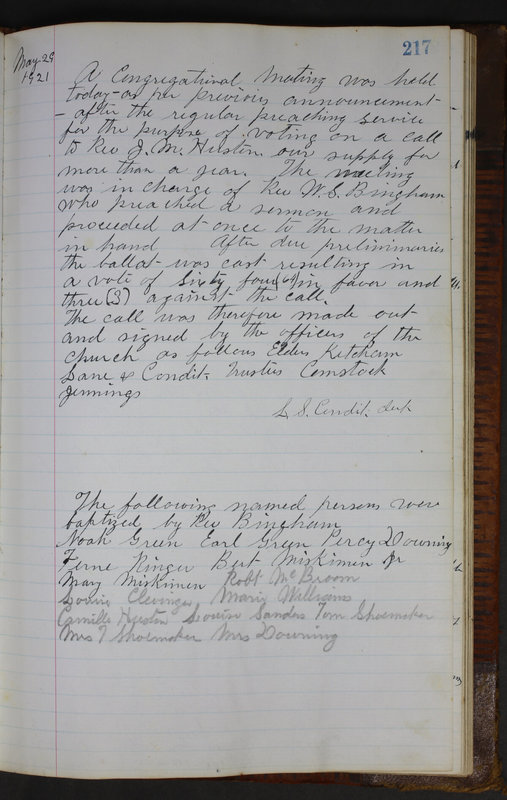 217
May 29
1921
A Congregational Meeting was held
today - as per previous announcement -
- after the regular preaching service
for the purpose of voting on a call
to Rev J. M. Huston our supply for
more than a year. The meeting
was in charge of Rev W. S. Bingham
who preached a sermon and
proceeded at once to the matter
in hand After due preliminaries
the ballot was cast resulting in
a vote of Sixty four (64) in favor and
three (3) against the call.
The call was therefore made out
and signed by the officers of the
church as follows Elders Ketcham
Lane & Condit Trustees Comstock
Jennings
L. S. Condit Clerk
The following named persons were
baptized by Rev Bingham
Noah Green Earl Green Percy Downing
Ferne Ringer Bert Miskimen Jr
Mary Miskimen Robt McBroom
Louise Clevinger Marie Williams
Camille Huston Louise Sanders Tom Shoemaker
Mrs T Shoemaker Mrs Downing